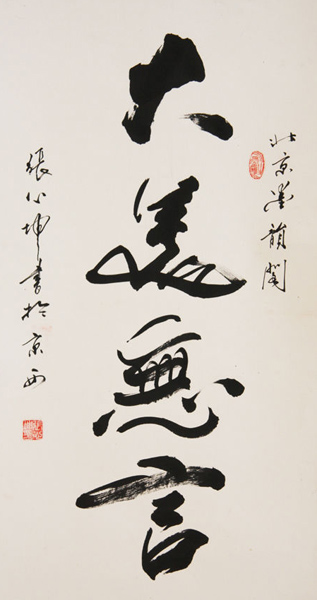 北京墨韻閣
大美無言
張心坤書於京西